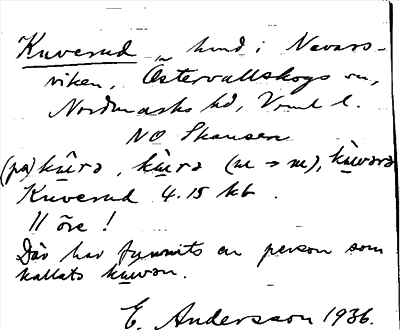 Kuverud „ hmd i Navars-
viken, Östervallskogs sn,
Nordmarks hd, Vrml l.
NO Skansen
(på) kùrə, kùrə (m → m), kùwərə
Kuverud 4.15 kb.
11 öre!
Där har funnits en person som
kallats kuwən.
E. Andersson 1936.